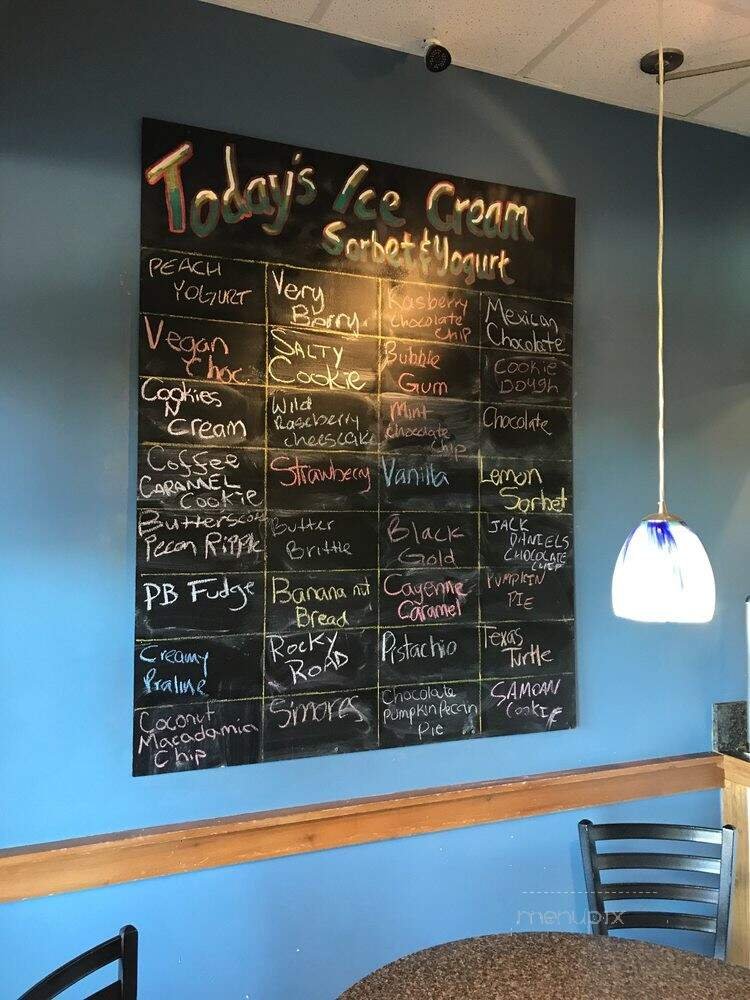 Today's Ice Cream
Sorbet & Yogurt
PEACH
YOGURT
Very
Berry
Rasberry
Chocolate
Chip
Mexican
Chocolate
Vegan
Choc.
SALTY
Cookie
Bubble
Gum
Cookie
Dough
Cookies
N
Cream
Wild
Raspberry
cheescake
Mint
chocolate
chip
Chocolate
Coffee
CARAMEL
Cookie
Strawberry
Vanilla
Lemon
Sorbet
Butterscotch
Pecan Ripple
Butter
Brittle
Black
Gold
JACK
DANIELS
CHOCOLATE
CHIP
PB Fudge
Banana nut
Bread
Cayenne
Caramel
PUMPKIN
PIE
Creamy
Praline
ROCKY
ROAD
Pistachio
Texas
Turtle
Coconut
Macadamia
Chip
S'mores
Chocolate
Pumpkin Pecan
Pie
SAMOAN
COOKIE
menupix